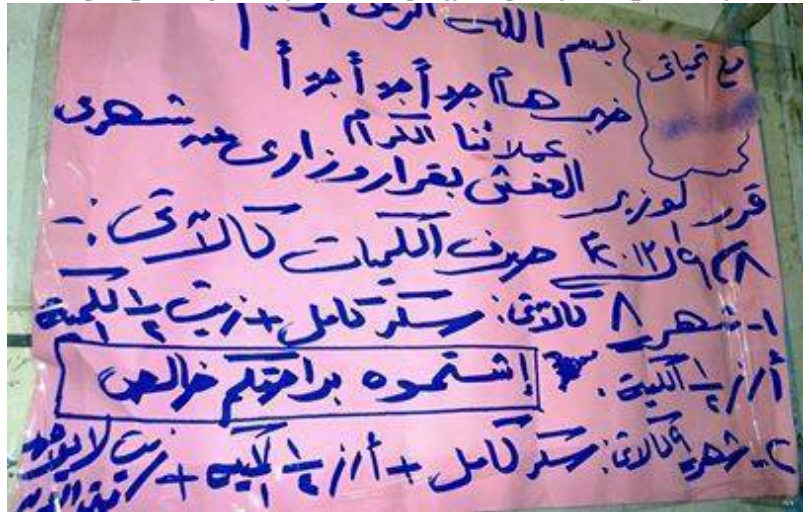 بسم الله الرحمن
مع تحياتي
خبر هام جداً جداً جداً
عملائنا الكرام
قرر لوزير العفش بقرار وزاري عن شهرى
٨، ٩ / ٢٠١٢ صرف الكميات كالآتى :-
١- شهر ٨ كالآتى: سكر كامل + زيت ١/٢ الكمية
أرز ١/٢ الكمية . إشتموه براحتكم خالص
٢- شهر ٩ كالآتى: سكر كامل + أرز ١/٢ الكمية + زيت لا يوجد